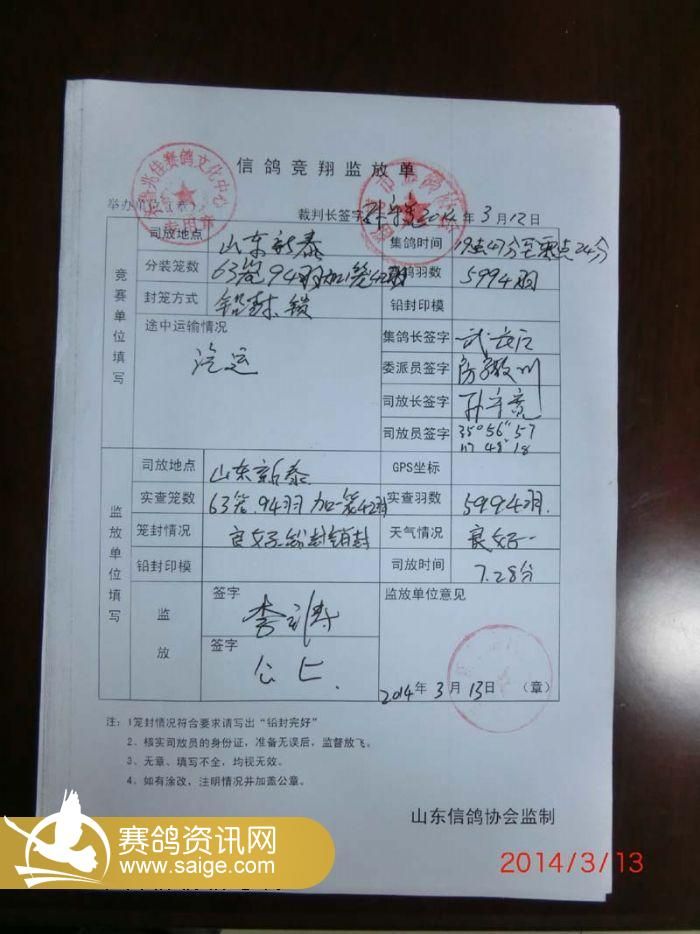 信鸽竞翔监放单
举办单位（章）
裁判长签字 2014年3月12日
竞赛单位填写
司放地点 山东新泰 集鸽时间 19点47分至零点24分
分装笼数 63笼94羽加1笼42羽 鸽羽数 5994羽
封笼方式 铅封锁 铅封印模
途中运输情况
汽运
集鸽长签字
委派员签字
司放长签字 孙守亮
司放员签字 35°56″57
117 48′18
监放单位填写
司放地点 山东新泰 GPS坐标
实查笼数 63笼.94羽加一笼42羽 实查羽数 5994羽.
笼封情况 良好铅封锁封 天气情况 良好
铅封印模 司放时间 7.28分
监放
签字
签字
监放单位意见
2014年3月13日（章）
注：1笼封情况符合要求请写出“铅封完好”
2、核实司放员的身份证，准备无误后，监督放飞。
3、无章、填写不全，均视无效。
4、如有涂改，注明情况并加盖公章。
山东信鸽协会监制
赛鸽资讯网
www.saige.com
2014/3/13